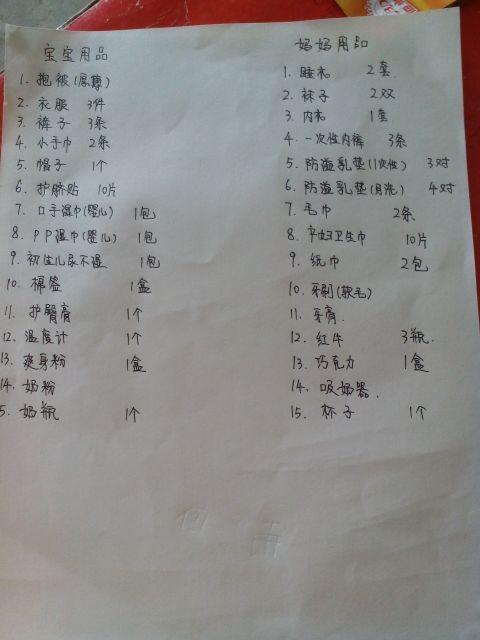 宝宝用品
1. 抱被(厚薄)
2. 衣服 3件
3. 裤子 3条
4. 小手巾 2条
5. 帽子 1个
6. 护脐贴 10片
7. 口手湿巾(婴儿) 1包
8. PP湿巾(婴儿) 1包
9. 初生儿尿不湿 1包
10. 棉签 1盒
11. 护臀膏 1个
12. 温度计 1个
13. 爽身粉 1盒
14. 奶粉
5. 奶瓶 1个
妈妈用品
1. 睡衣 2套
2. 袜子 2双
3. 内衣 1套
4. 一次性内裤 3条
5. 防溢乳垫(1次性) 3对
6. 防溢乳垫(可洗) 4对
7. 毛巾 2条
8. 产妇卫生巾 10片
9. 纸巾 2包
10. 牙刷(软毛)
11. 牙膏
12. 红牛 3瓶.
13. 巧克力 1盒
14. 吸奶器.
15. 杯子 1个